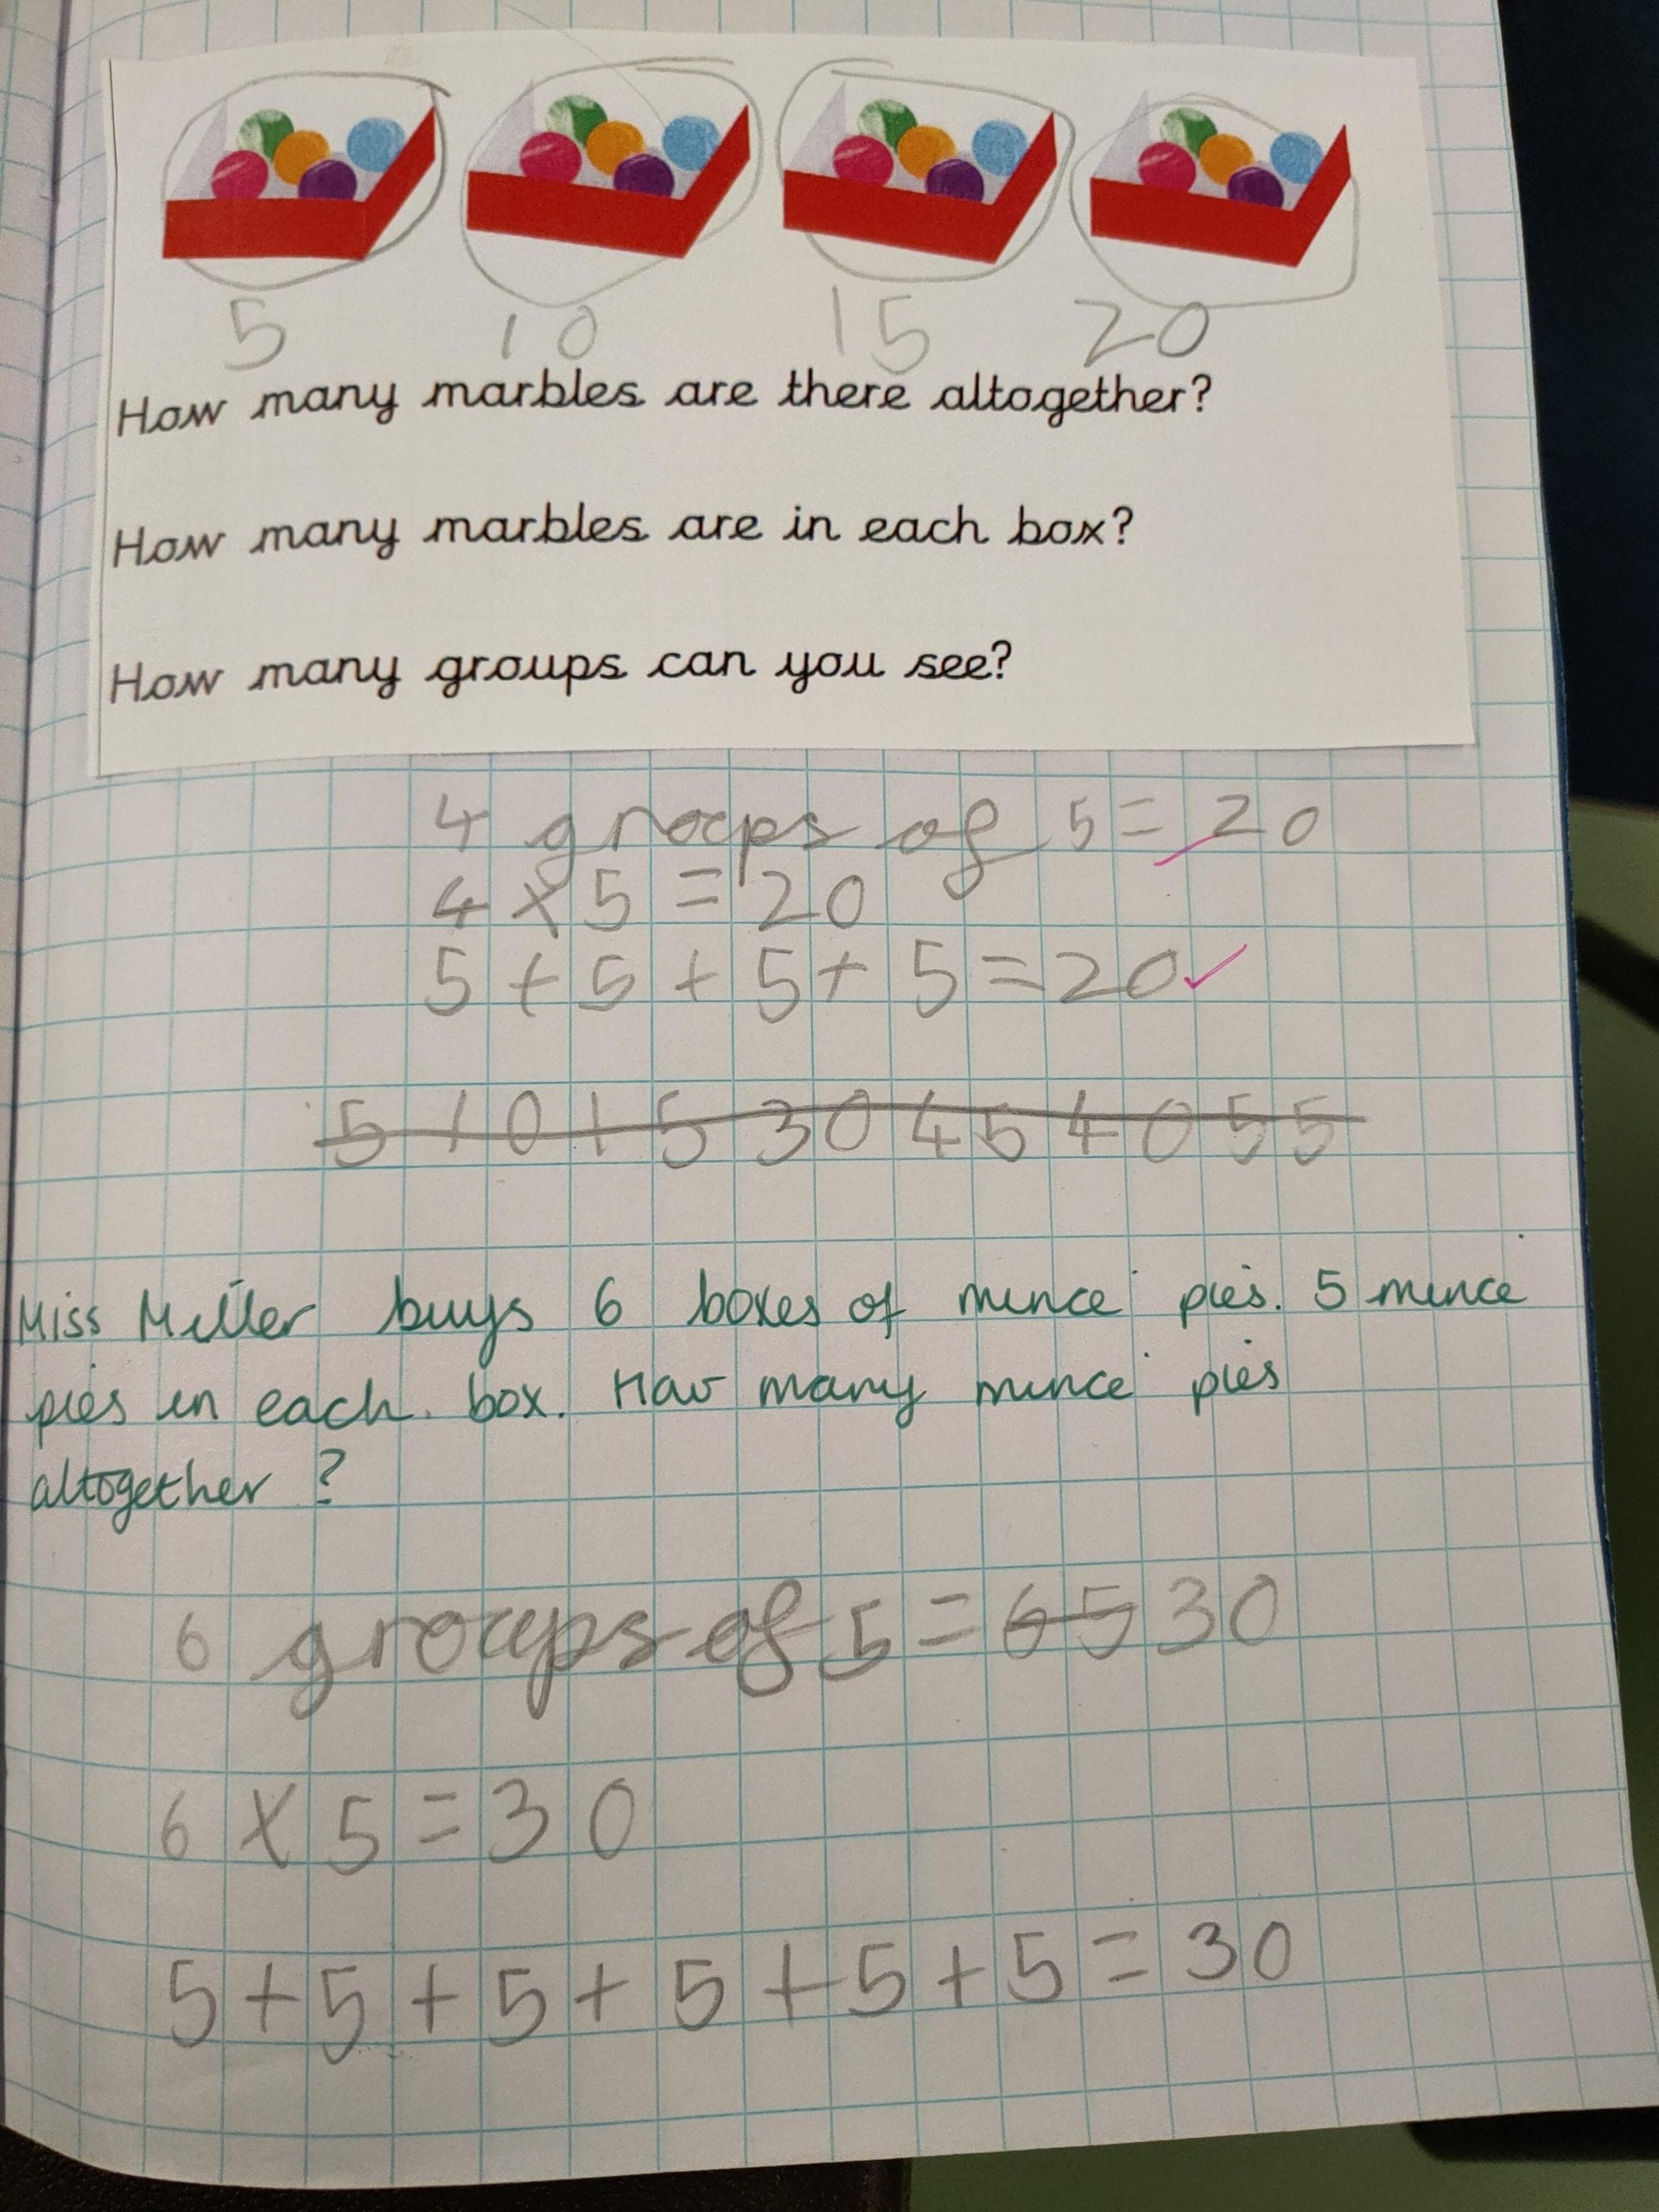 5 10 15 20
How many marbles are there altogether?
How many marbles are in each box?
How many groups can you see?
4 groups of 5 = 20
4 x 5 = 20
5 + 5 + 5 + 5 = 20
5 10 15 30 45 40 55
Miss Miller buys 6 boxes of mince pies. 5 mince
pies in each box. How many mince pies
altogether?
6 groups of 5 = 65 30
6 x 5 = 30
5 + 5 + 5 + 5 + 5 + 5 = 30